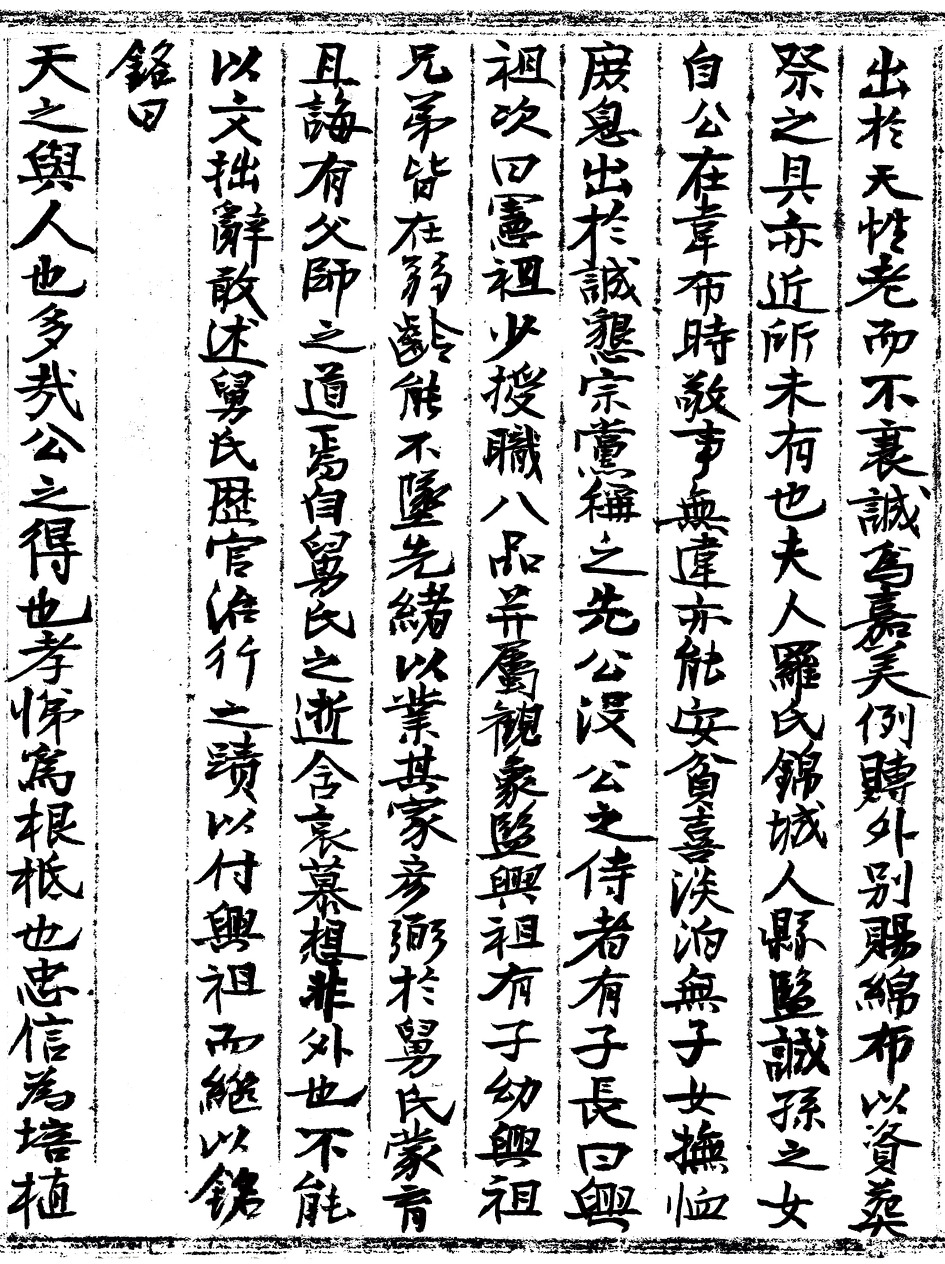 出於天性老而不衰誠爲嘉美例賻外別賜綿布以資葬
祭之具亦近所未有也夫人羅氏錦城人縣監誠孫之女
自公在韋布時敬事無違亦能安貧喜淡泊無子女撫恤
庶息出於誠懇宗黨稱之先公沒公之侍者有子長曰興
祖次曰憲祖少授職八品并屬觀象監興祖有子幼興祖
兄弟皆在弱齡能不墜先緒以業其家彦弼於舅氏蒙育
且誨有父師之道焉自舅氏之逝含哀慕想非外也不能
以文拙辭敢述舅氏歷官治行之蹟以付興祖而繼以銘
銘曰
天之與人也多哉公之得也孝悌爲根柢也忠信爲培植